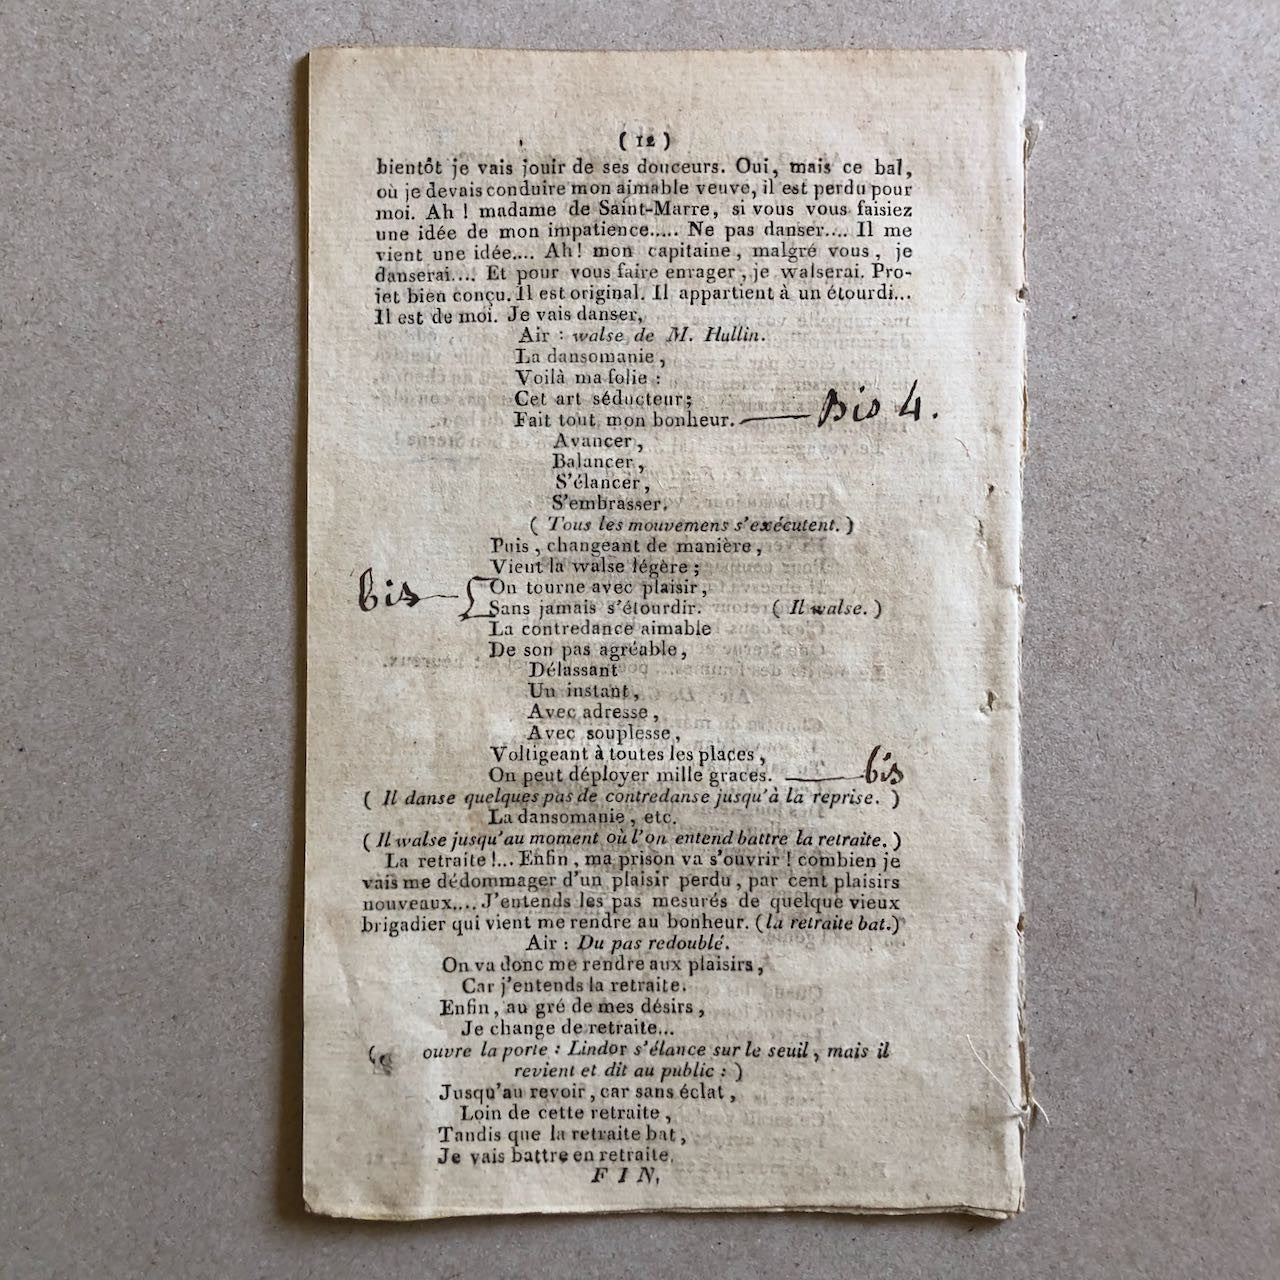 ( 12 )
bientôt je vais jouir de ses douceurs. Oui, mais ce bal,
où je devais conduire mon aimable veuve, il est perdu pour
moi. Ah ! madame de Saint-Marre, si vous vous faisiez
une idée de mon impatience..... Ne pas danser.... Il me
vient une idée.... Ah ! mon capitaine, malgré vous, je
danserai.... Et pour vous faire enrager, je walserai. Pro-
jet bien conçu. Il est original. Il appartient à un étourdi...
Il est de moi. Je vais danser,
Air : walse de M. Hullin.
La dansomanie,
Voilà ma folie :
Cet art séducteur;
Fait tout mon bonheur. — Bis 4.
Avancer,
Balancer,
S'élancer,
S'embrasser.
( Tous les mouvemens s'exécutent. )
Puis, changeant de manière,
Vient la walse légère ;
On tourne avec plaisir,
bis
Sans jamais s'étourdir. ( Il walse. )
La contredance aimable
De son pas agréable,
Délassant
Un instant,
Avec adresse,
Avec souplesse,
Voltigeant à toutes les places,
On peut déployer mille graces. — bis
( Il danse quelques pas de contredanse jusqu'à la reprise. )
La dansomanie, etc.
( Il walse jusqu'au moment où l'on entend battre la retraite. )
La retraite !... Enfin, ma prison va s'ouvrir ! combien je
vais me dédommager d'un plaisir perdu, par cent plaisirs
nouveaux.... J'entends les pas mesurés de quelque vieux
brigadier qui vient me rendre au bonheur. (la retraite bat.)
Air : Du pas redoublé.
On va donc me rendre aux plaisirs,
Car j'entends la retraite.
Enfin, au gré de mes désirs,
Je change de retraite...
( ouvre la porte : Lindor s'élance sur le seuil, mais il
revient et dit au public : )
Jusqu'au revoir, car sans éclat,
Loin de cette retraite,
Tandis que la retraite bat,
Je vais battre en retraite.
FIN.